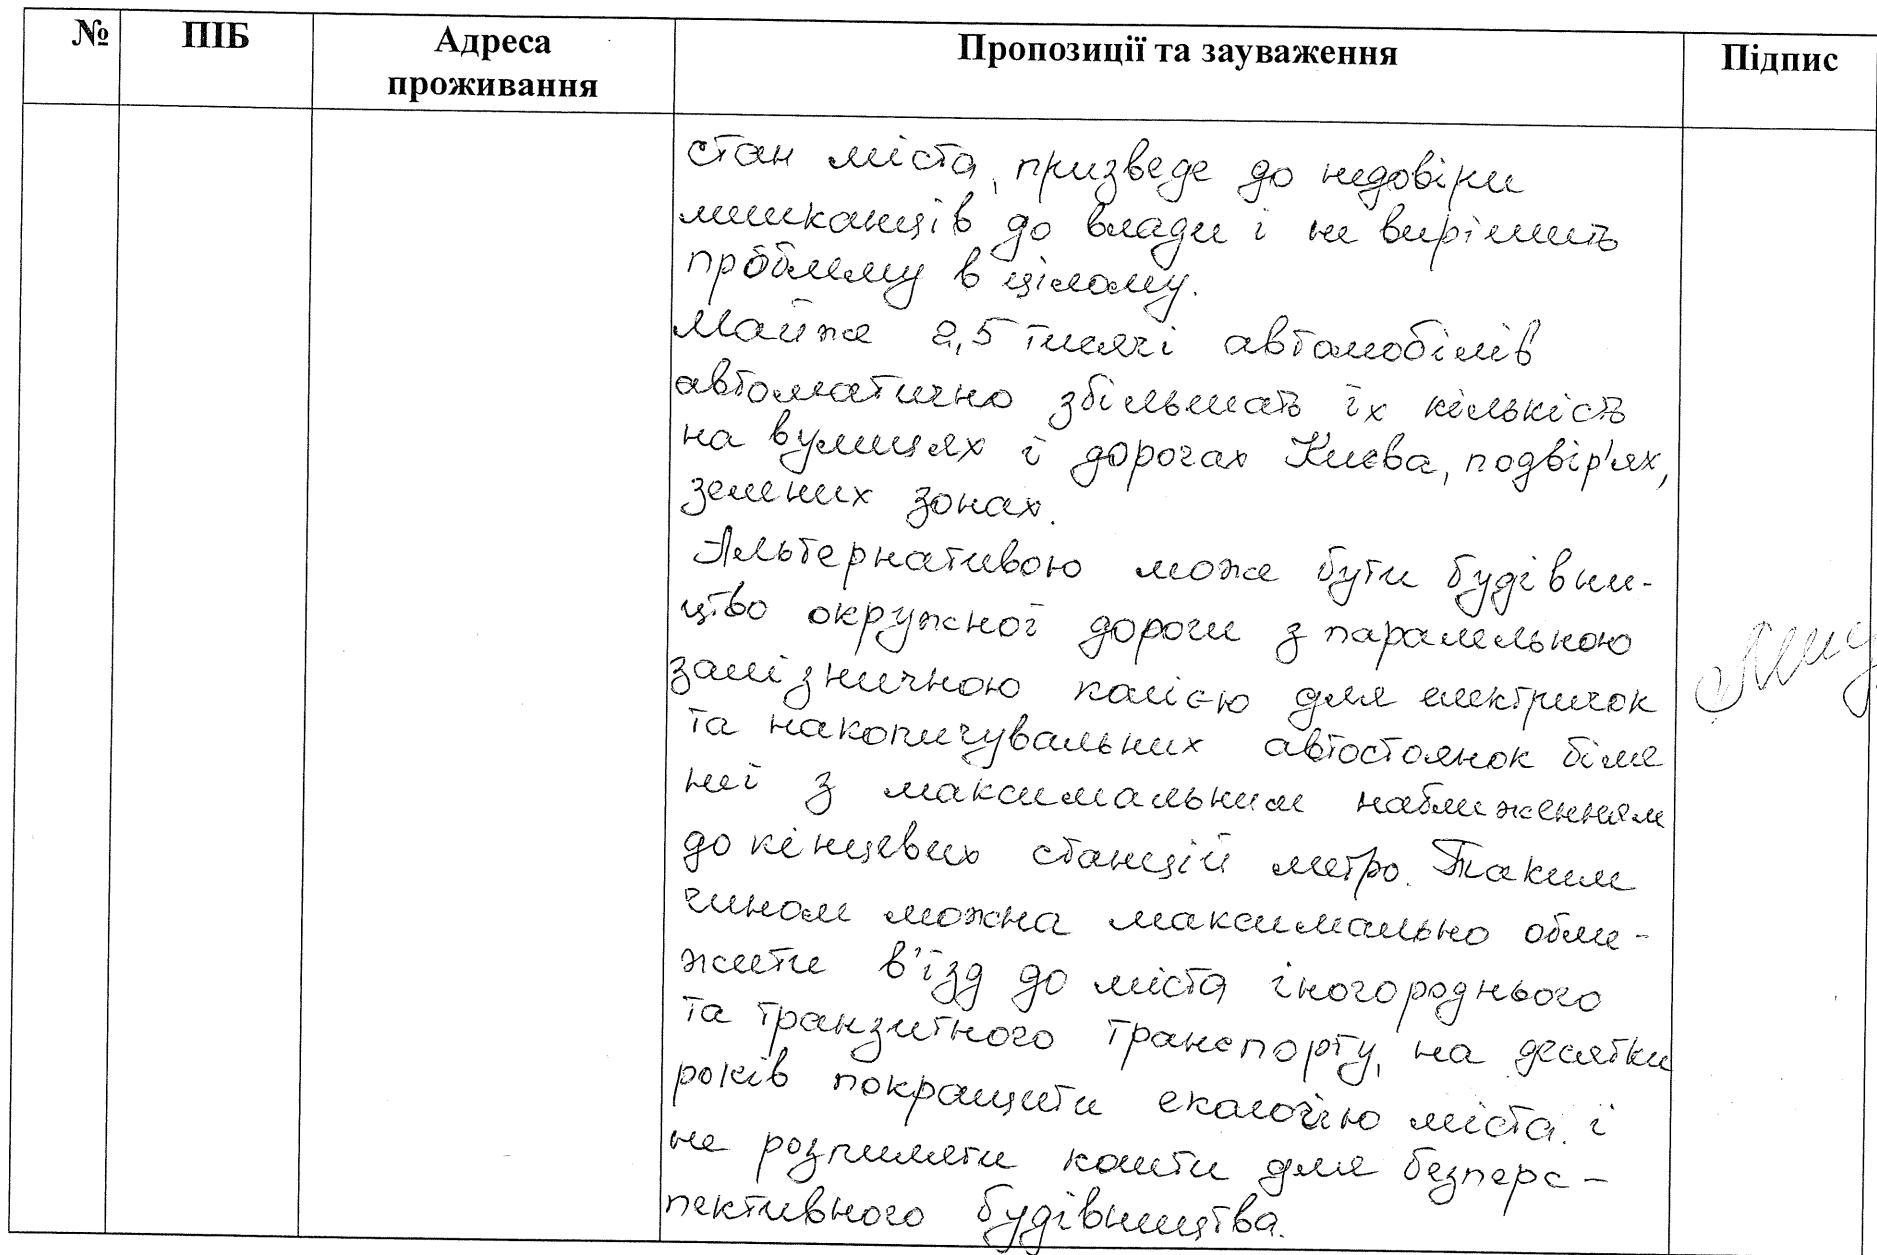 № ПІБ Адреса проживання Пропозиції та зауваження Підпис
стан міста, призведе до недовіри
мешканців до влади і не вирішить
проблему в цілому.
Майже 2,5 тисячі автомобілів
автоматично збільшать їх кількість
на вулицях і дорогах Києва, подвір'ях,
зелених зонах.
Альтернативою може бути будівни-
цтво окружної дороги з паралельною
залізничною колією для електричок
та накопичувальних автостоянок біля
неї з максимальним наближенням
до кінцевих станцій метро. Таким
чином можна максимально обме-
жити в'їзд до міста іногороднього
та транзитного транспорту, на десятки
років покращити екологію міста і
не розпиляти кошти для безперс-
пективного будівництва.